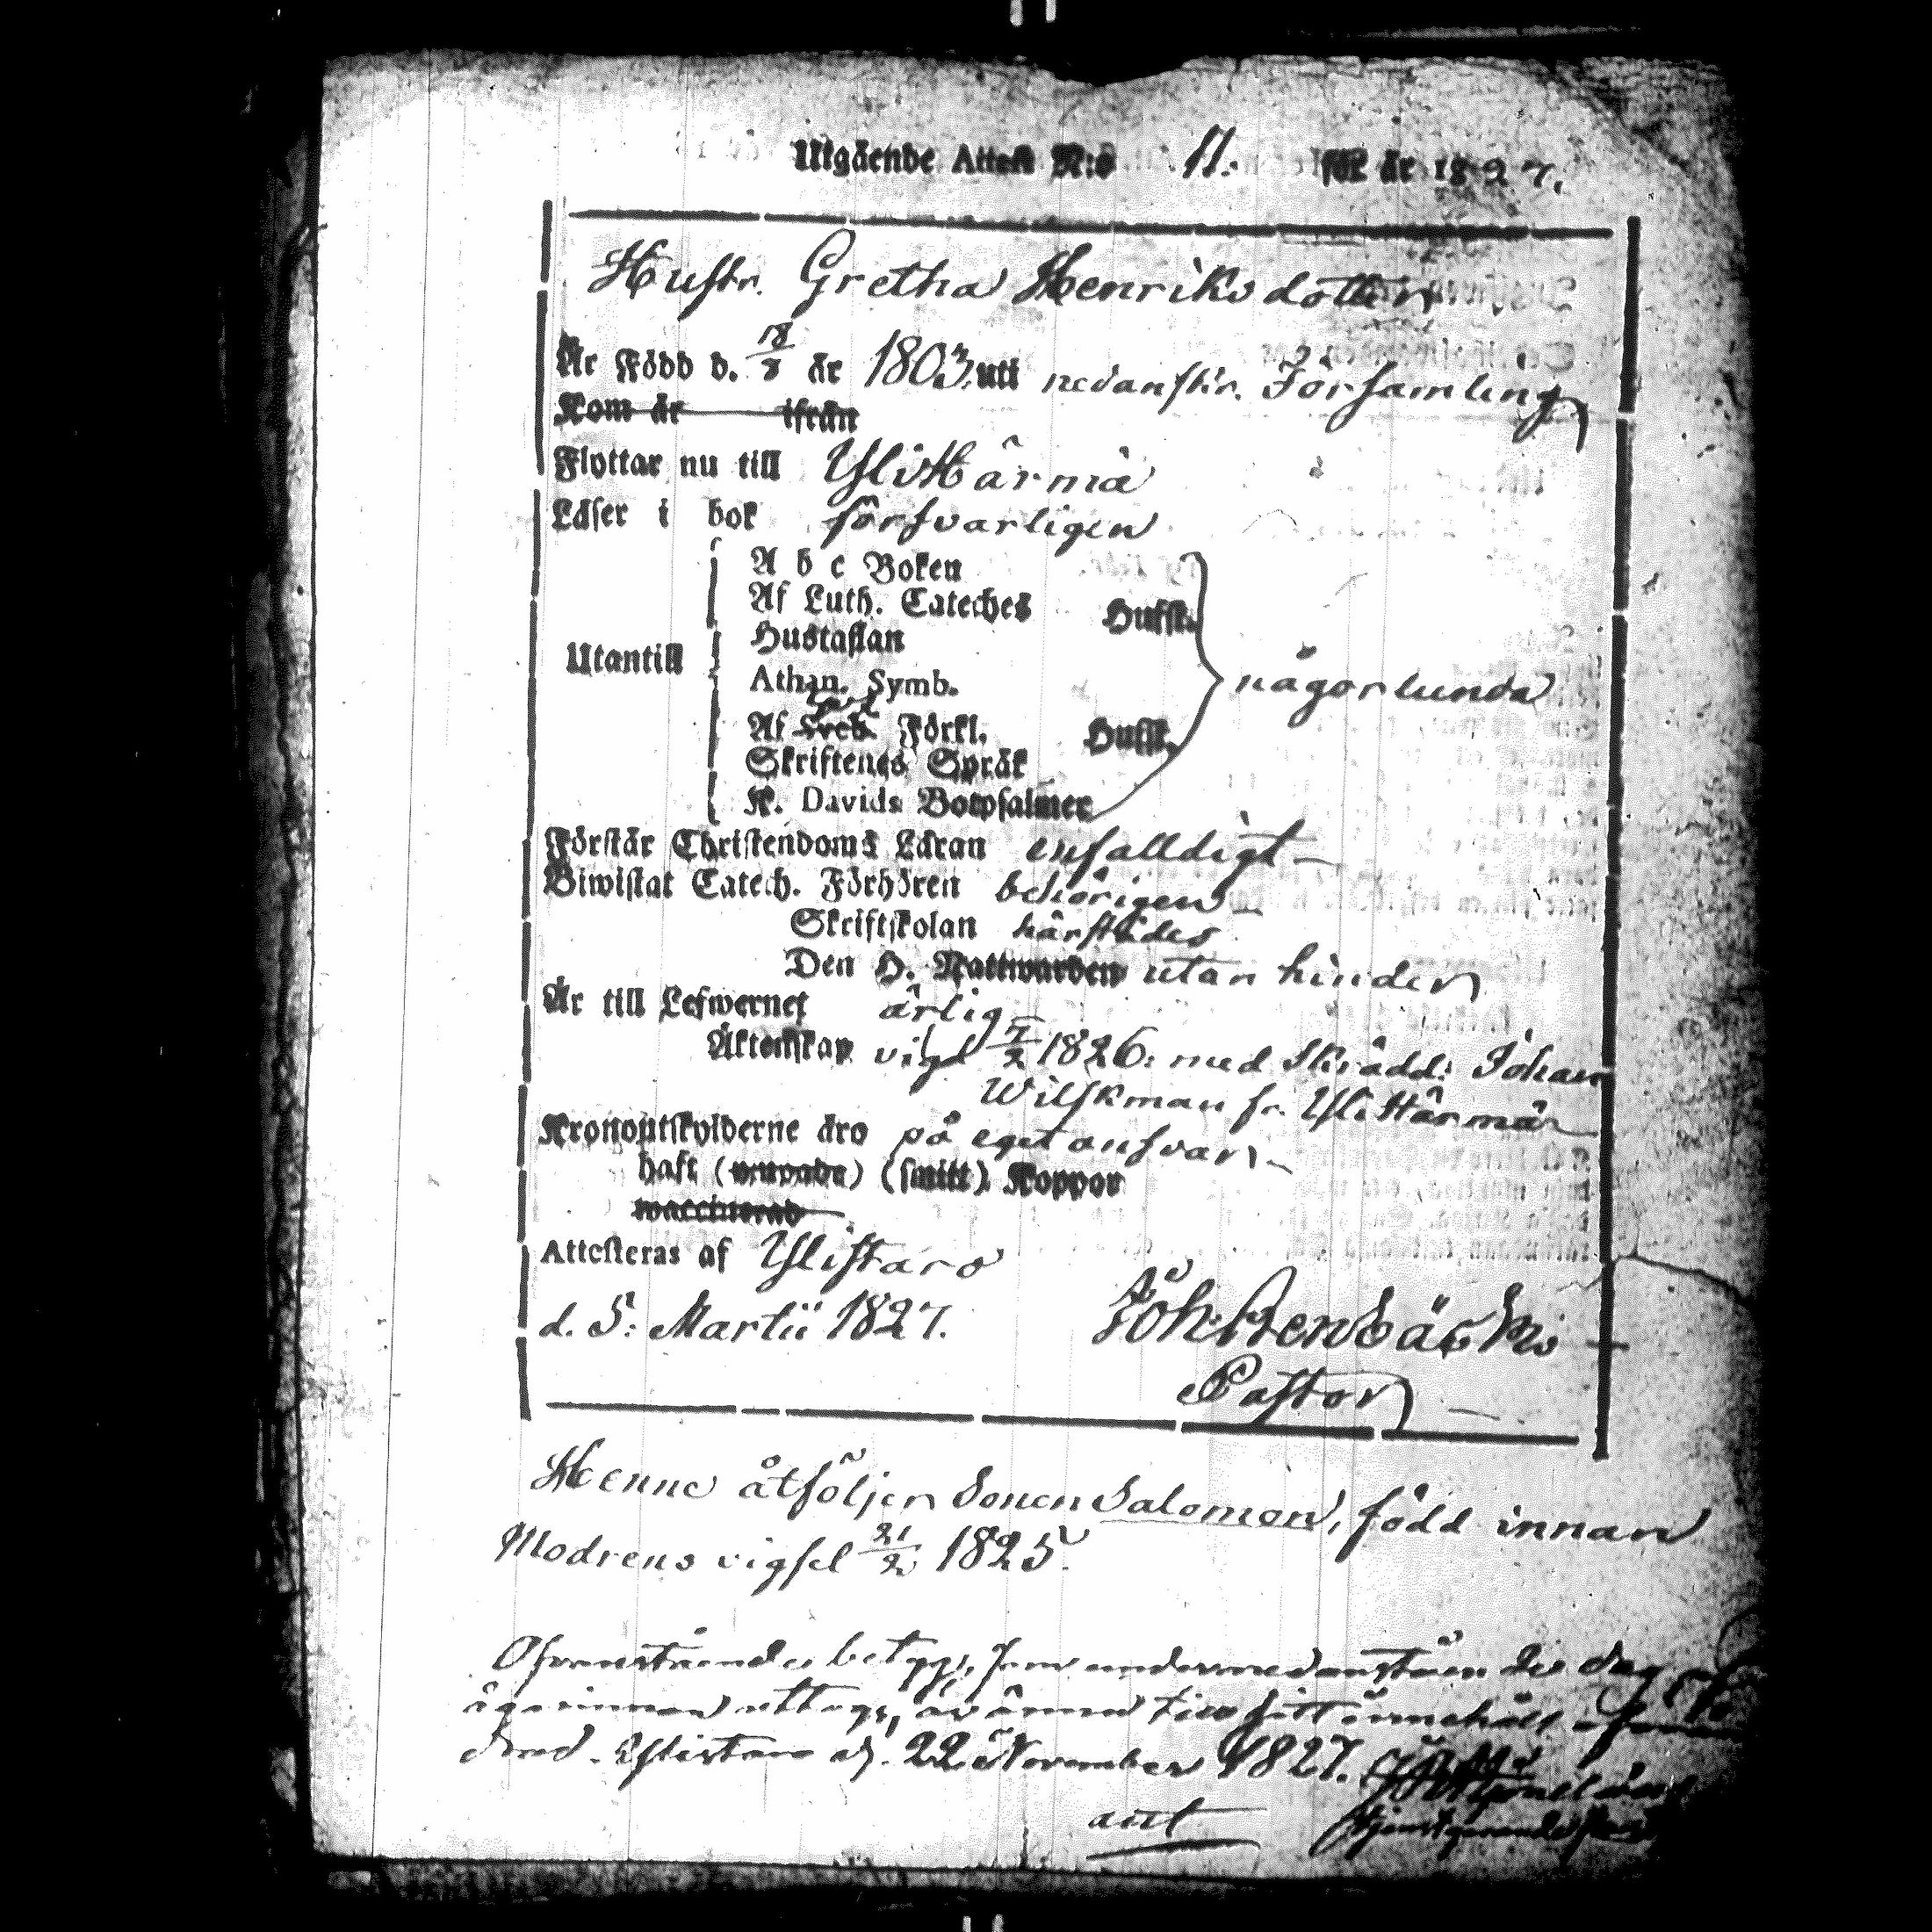 Utgående Attest N:o 11. för år 1827.
Hustr. Gretha Henriksdotter
Är Född d. 18/8 år 1803. uti nedanskr. Församling
Kom år ifrån
Flyttar nu till YliHärmä
Läser i bok försvarligen
A b c Boken
Af Luth. Cateches Husf.
Hustaflan
Utantill
Athan. Symb. någorlunda
Af Sveb. Förkl. Husf.
Skriftenes Språk
K. Davids Botpsalmer
Förstår Christendoms Läran enfalldigt
Biwistat Catech. Förhören behörigen
Skriftskolan härstädes
Den H. Nattwarden utan hinder
Är till Lefwernet ärlig
Äktenskap vigd 7/2 1826: med Skrädd: Johan
Wilskman fr. YliHärmä
Kronoutskylderne äro på eget ansvar
haft (smitt) Koppor
waccinerad
Attesteras af Ylistaro
d. 5: Martii 1827. Joh. Stenbäck
Pastor
Henne åtföljer Sonen Salomon, född innan
Modrens vigsel 21/2 1825.
Ofvanstående betyg, som dag
uttagit, till sitt innehåll
Ylistaro d. 22 November 1827.